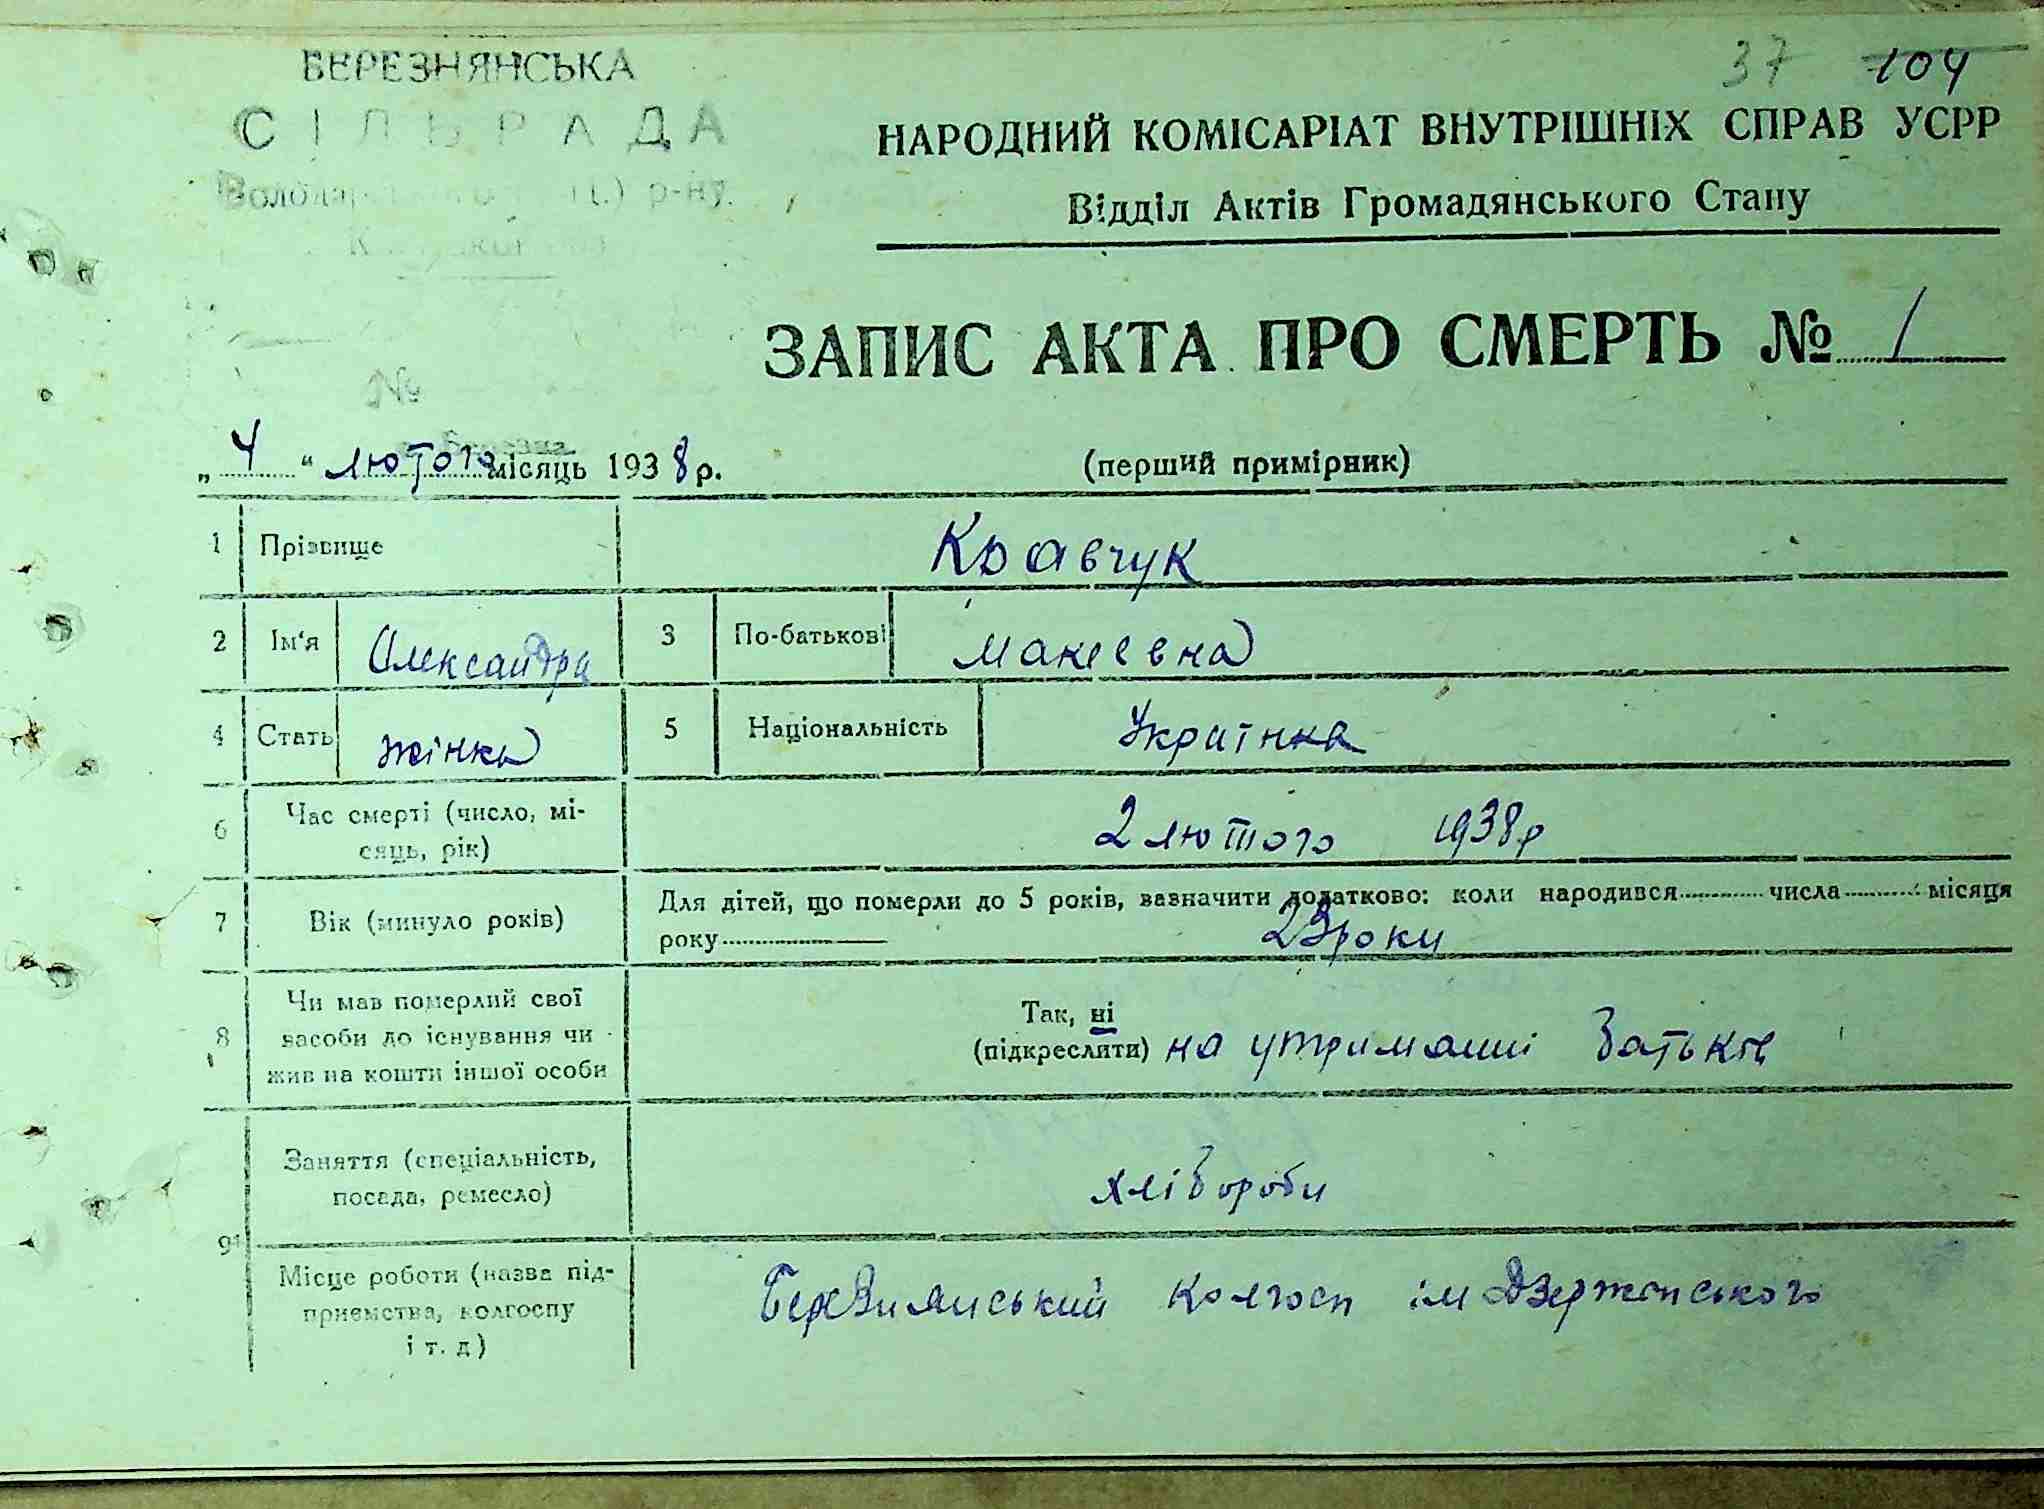 37 104
БЕРЕЗНЯНСЬКА
СІЛЬРАДА
р-ну.
НАРОДНИЙ КОМІСАРІАТ ВНУТРІШНІХ СПРАВ УСРР
Відділ Актів Громадянського Стану
ЗАПИС АКТА ПРО СМЕРТЬ № 1
№
„ 4 “ лютого місяць 1938 р.
(перший примірник)
1 Прізвище Кравчук
2 Ім'я Олександра 3 По-батькові Макеевна
4 Стать жінка 5 Національність Українка
6 Час смерті (число, мі-
сяць, рік)
2 лютого 1938р
7 Вік (минуло років)
Для дітей, що померли до 5 років, зазначити додатково: коли народився числа місяця
року 23роки
8 Чи мав померлий свої
засоби до існування чи
жив на кошти іншої особи
Так, ні
(підкреслити) на утриманні батьків
9 Заняття (спеціальність,
посада, ремесло)
хлібороби
Місце роботи (назва під-
приємства, колгоспу
і т. д)
Березнянський колгосп ім Дзержинського